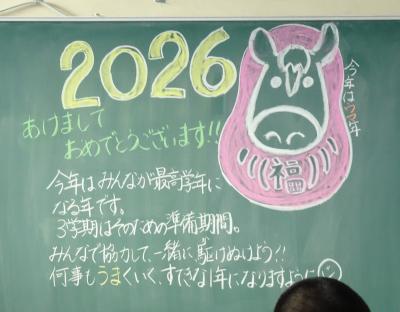 2026
あけまして
おめでとうございます!!
今年はウマ年
福
今年はみんなが最高学年に
なる年です。
3学期はそのための準備期間。
みんなで協力して、一緒に駆けぬけよう!!
何事もうまくいく、すてきな1年になりますように